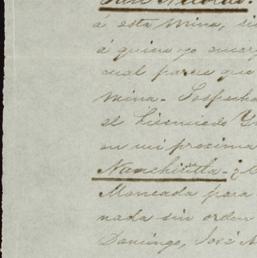 San Nicolas.
á esta mina, si
á quien yo encarg
cual parece que
mina. Sospecha
el Licenciado
en mi proxima
Nanchititla.
Moncada para
nada sin orden
Domingo, José